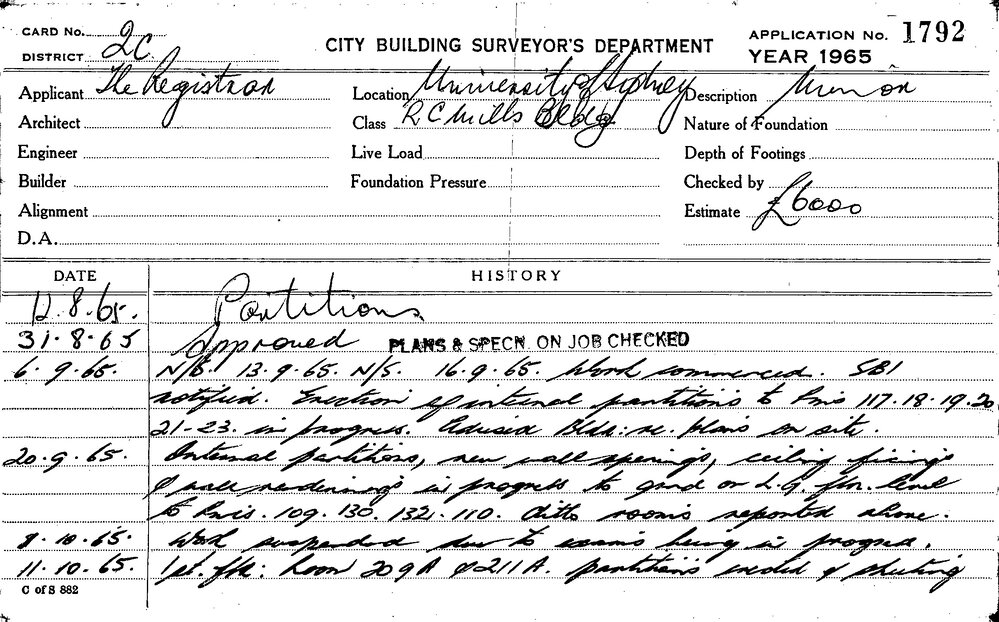 CARD No.
DISTRICT 2C
CITY BUILDING SURVEYOR'S DEPARTMENT
APPLICATION No. 1792
YEAR 1965
Applicant The Registrar
Location University of Sydney
Description
Architect
Class R C Mills Bldg
Nature of Foundation
Engineer
Live Load
Depth of Footings
Builder
Foundation Pressure
Checked by
Alignment
Estimate £6000
D.A.
DATE HISTORY
12.8.65. Partitions
31.8.65 Approved PLANS & SPECN. ON JOB CHECKED
6.9.65. N/S. 13.9.65. N/S. 16.9.65. Work commenced. SBI
notified. Erection of internal partitions to Rms 117.18.19.20
21-23. in progress. Advised Bldr: re. plans on site.
20.9.65. Internal partitions, new wall openings, ceiling fixings
& wall renderings in progress to grnd or L.G. flr. level
to Rms. 109. 130. 132. 110. Ditto rooms reported above.
8.10.65. Work suspended due to exams being in progress.
11.10.65. 1st. flr: Room 209A & 211A. partitions & sheeting
C of S 882